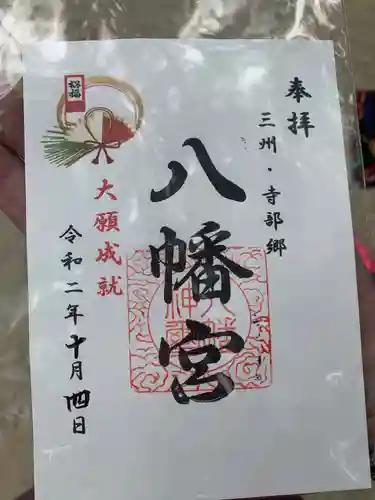 奉拝
三州・寺部郷
八幡宮
八幡
神社
招福
大願成就
令和二年十月四日